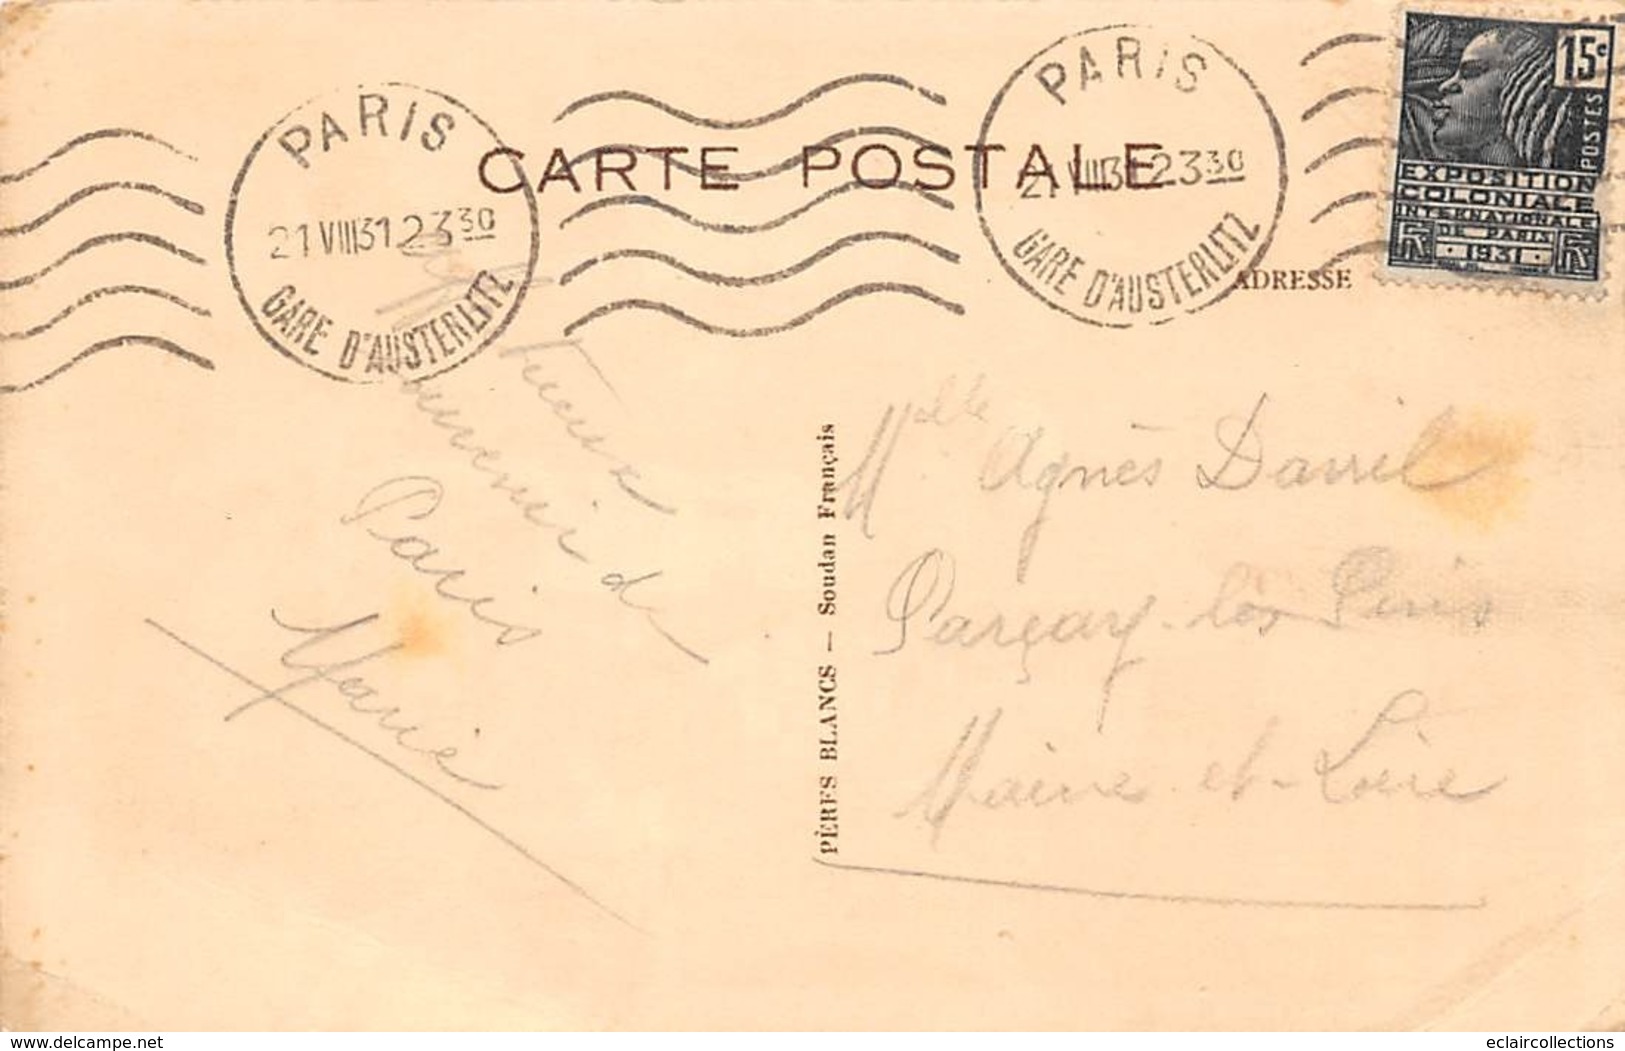 PARIS
21 VIII 31 23 30
GARE D'AUSTERLITZ
CARTE POSTALE
PARIS
21 VIII 31 23 30
GARE D'AUSTERLITZ
15c
POSTES
EXPOSITION
COLONIALE
INTERNATIONALE
DE PARIS
1931
ADRESSE
souvenir de
Paris
Marie
PÈRES BLANCS — Soudan Français
Mlle Agnès Darril
Parçay-les Pins
Maine-et-Loire
delcampe.net
eclaircollections